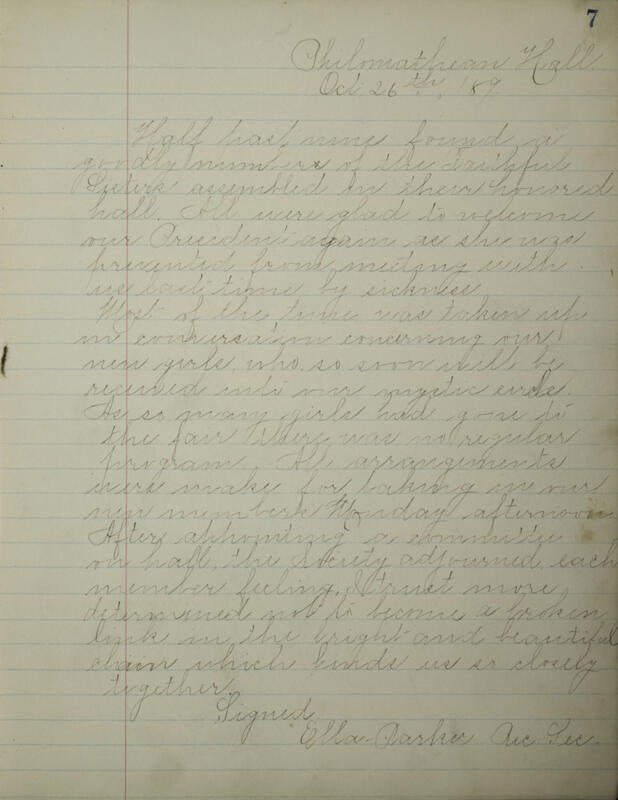 7
Philomathean Hall
Oct 26th, '89.
Half past nine found a
goodly numbers of the faithful
Sisters assembled in their honored
hall. All were glad to welcome
our President again as she was
prevented from meeting with
us last time by sickness
Most of the time was taken up
in conversation concerning our
new girls, who so soon will be
received into our mystic circle
As so many girls had gone to
the fair there was no regular
program. All arrangements
were make for taking in our
new members Monday afternoon.
After appointing a committee
on hall, the Society adjourned, each
member feeling, I trust more
determined not to become a broken
link in the bright and beautiful
chain which binds us so closely
together.
Signed
Ella Parker Rec Sec.